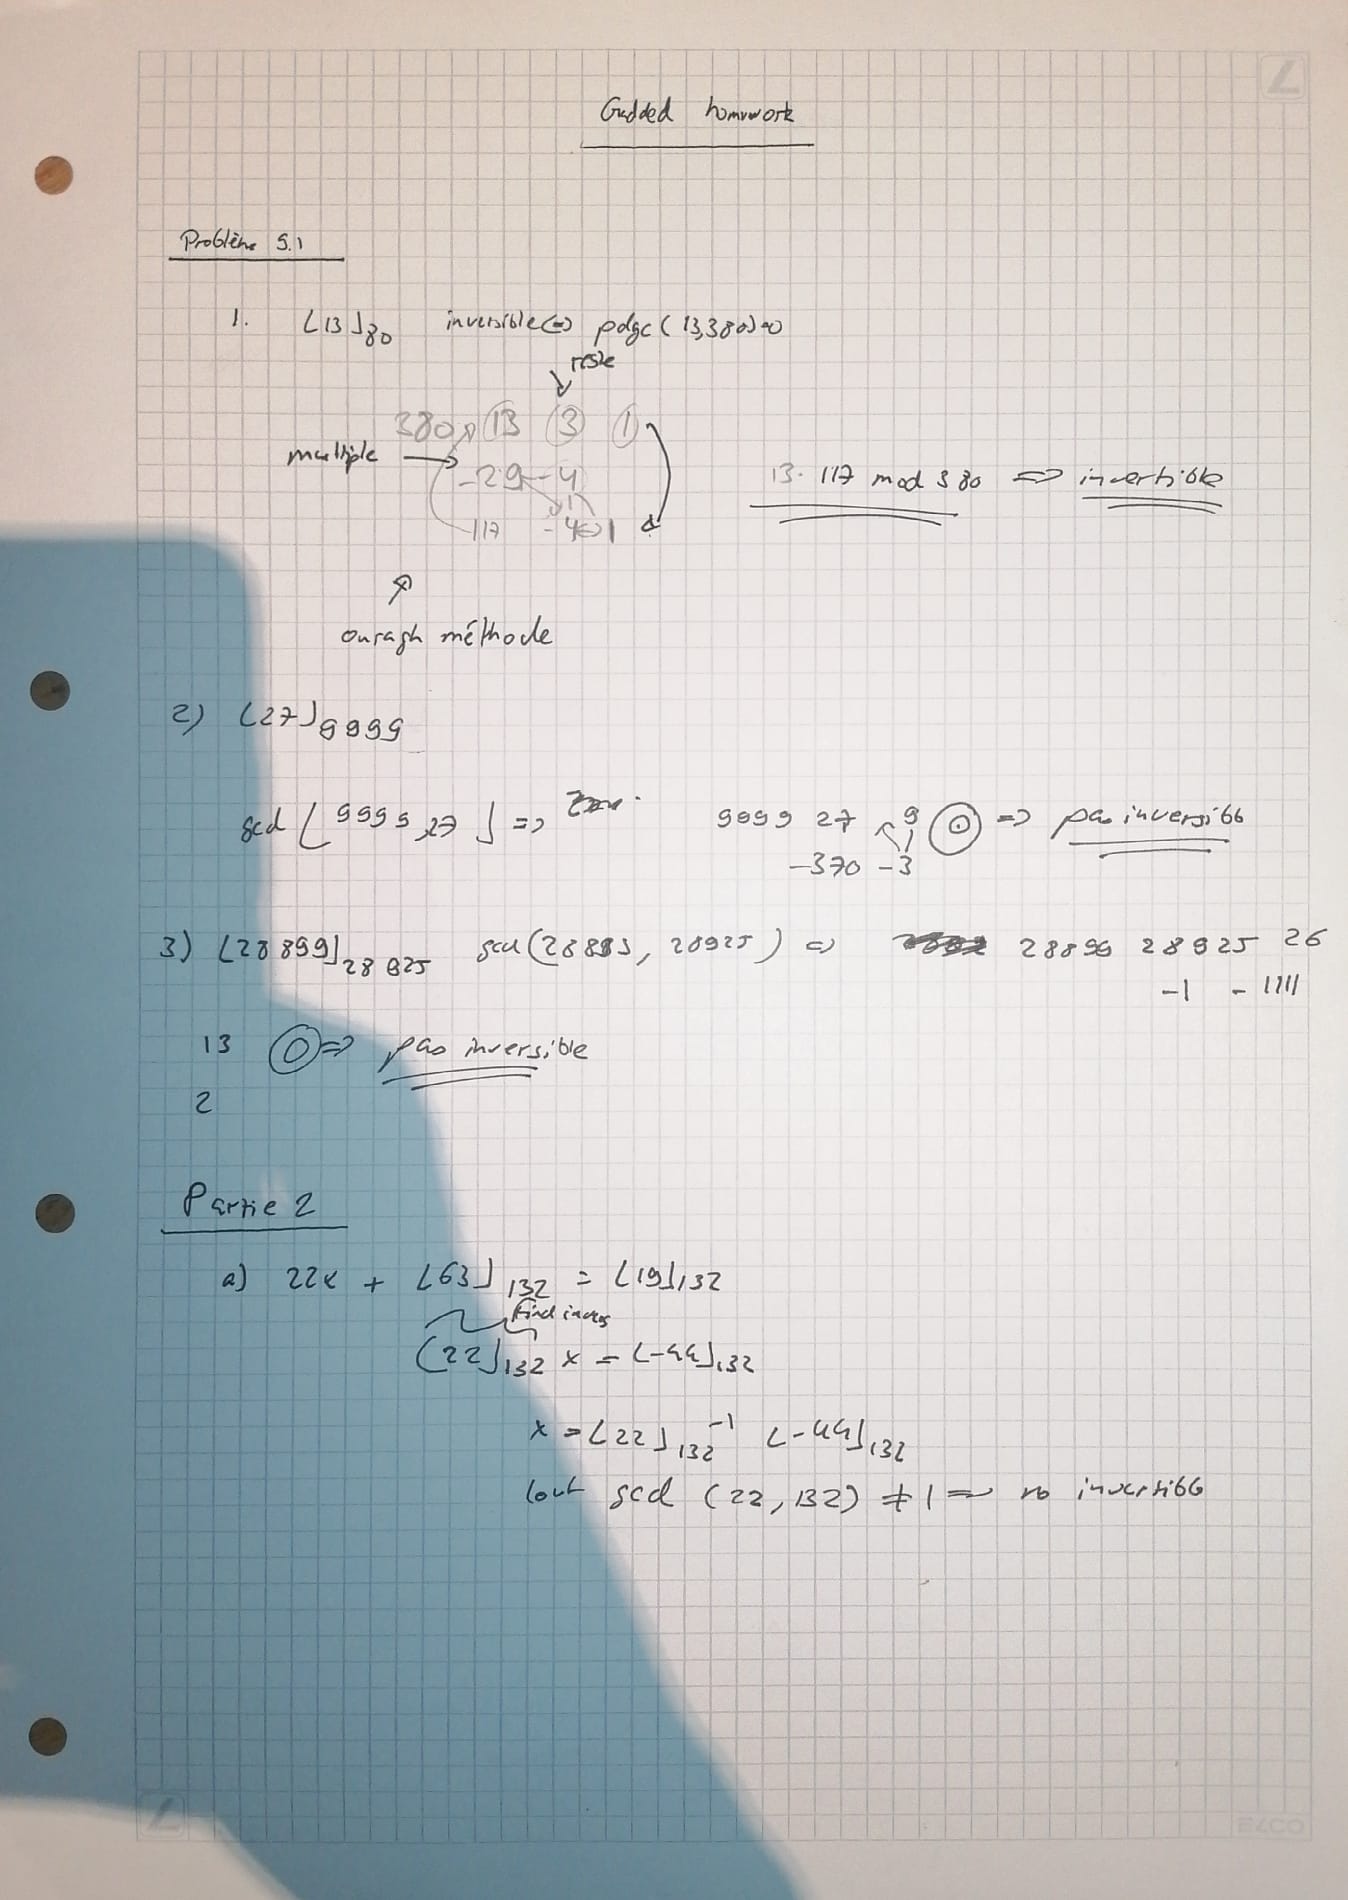 Gradded homework
Problème 5.1
1. [13]80 inversible(=) pdgc(13,380)=0
reste
380 13 3 1
multiple → -29 -4
13. 117 mod 380 => invertible
117 -4 1
ouragh méthode
2) [27]9999
gcd [9999,27] => 9999 27 9 0 => pas inversible
-370 -3
3) [28899]28925 gcd(28899, 28925) => 28899 28925 26
-1 -1111
13 0 => pas inversible
2
Partie 2
a) 22x + [63]132 = [19]132
find invers
[22]132 x = [-44]132
x = [22]132^-1 [-44]132
gcd (22,132) ≠ 1 => no invertible
ELCO